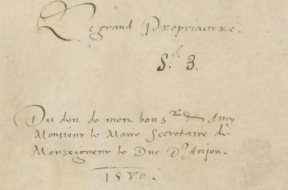 Le grand Proprietaire.
S. 3.
Du don de mon bon Sr & Amy
Monsieur le Maire Secretaire de
Monseigneur le Duc D'Anjou.
1580.